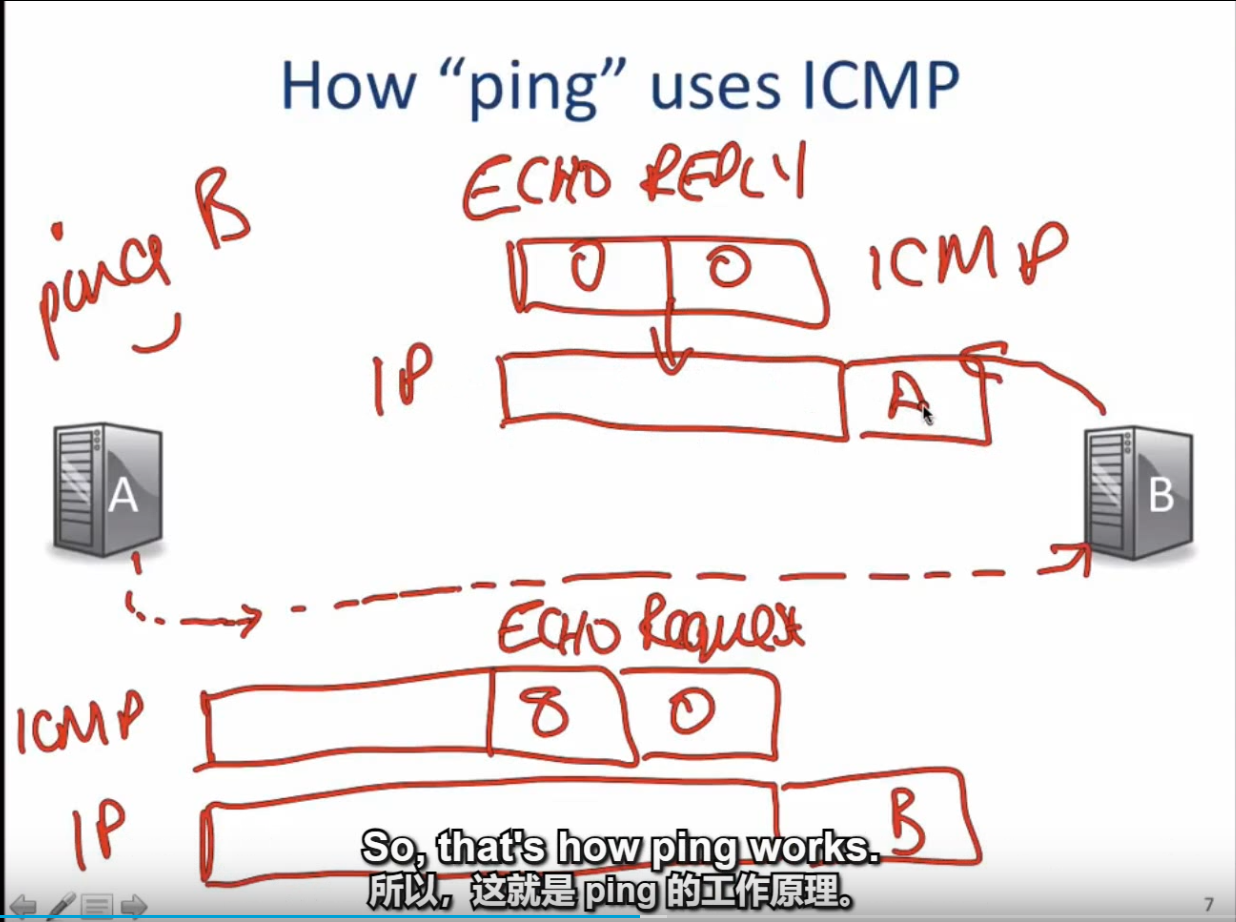 How “ping” uses ICMP
ECHO REPLY
ping B
0 0
ICMP
IP
A
A
B
ECHO Request
ICMP
8 0
IP
B
So, that's how ping works.
所以，这就是 ping 的工作原理。
7